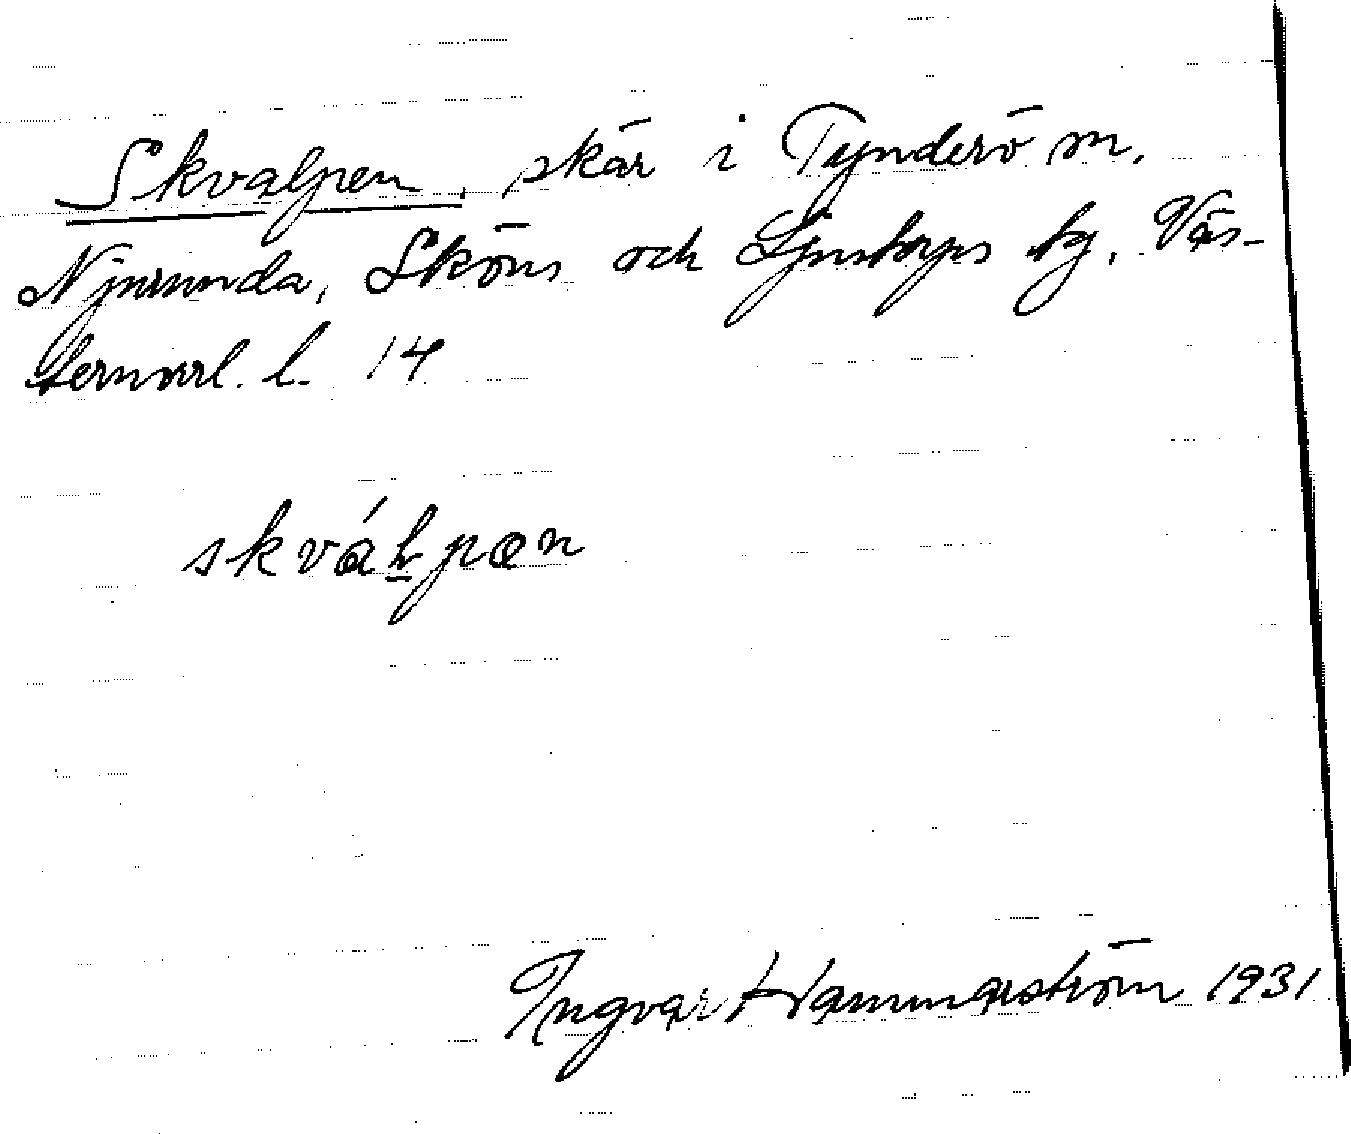 Skvalpen, skär i Tynderö m.
Njurunda, Sköns och Ljustorps tg. Väs-
ternorrl. l. 14
Ingvar Hammarström 1931